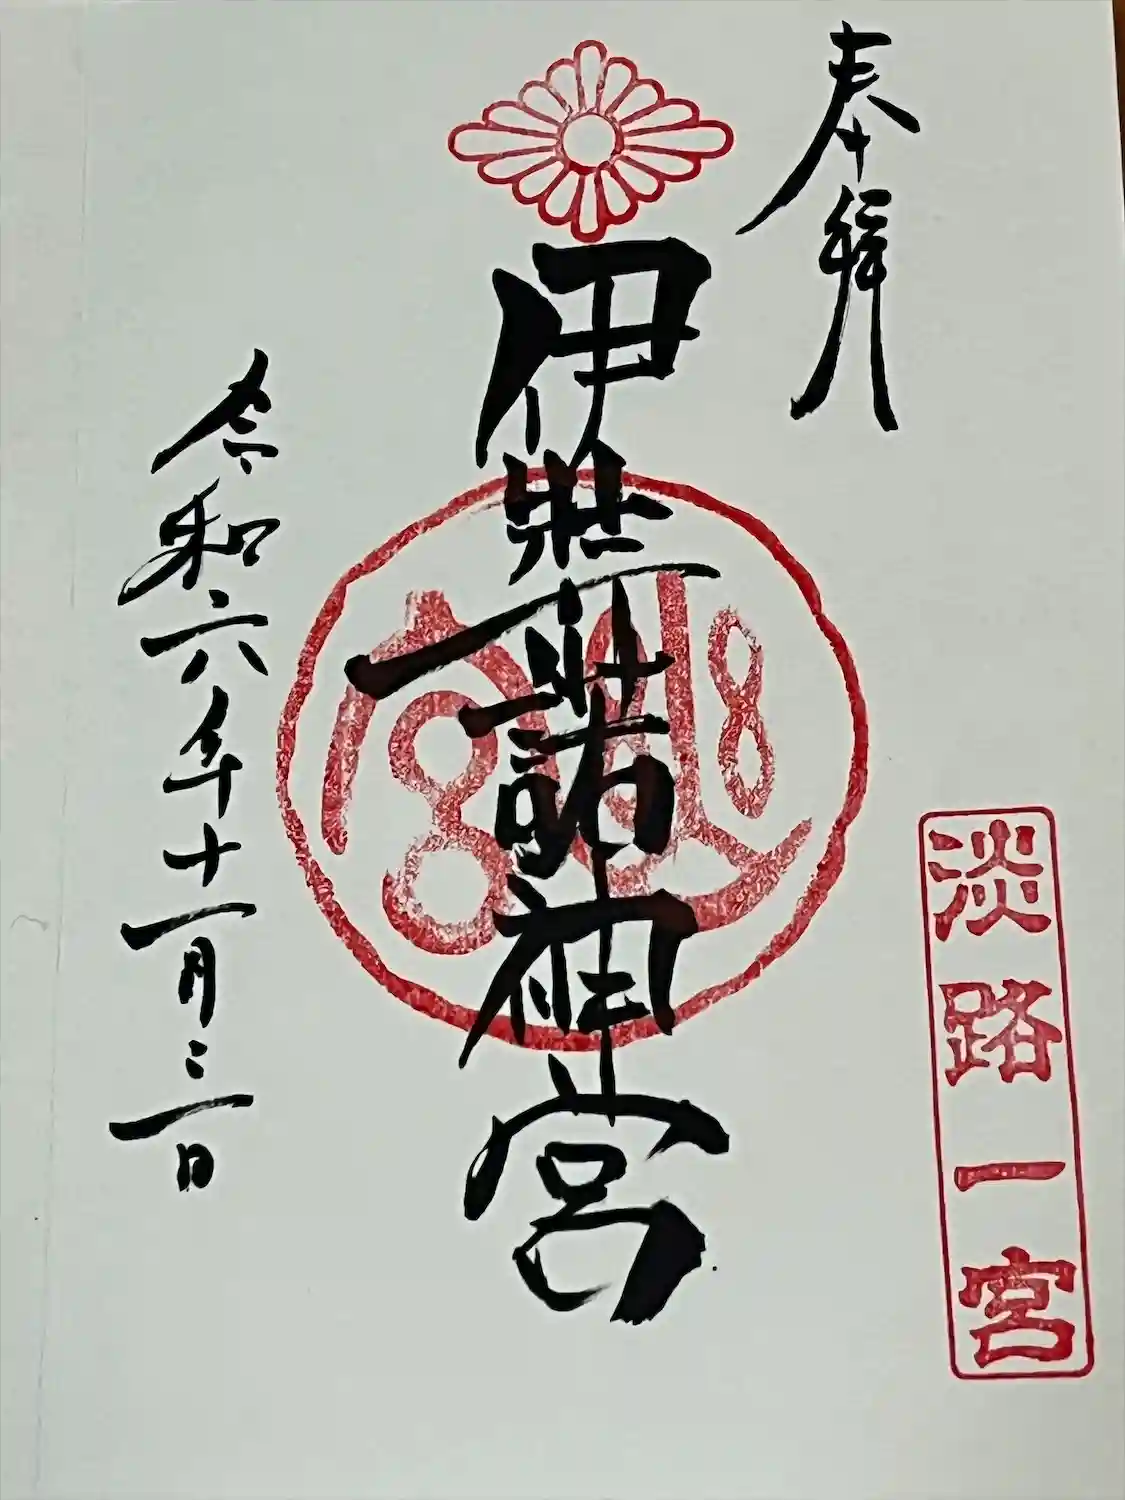 奉拝
淡路一宮
伊弉諾神宮
幽宮
令和六年十一月三日